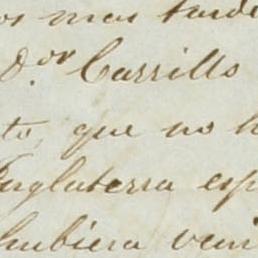 os mas tarde
D.or Carrillo
to, que no h
Inglaterra esp
hubiera veni